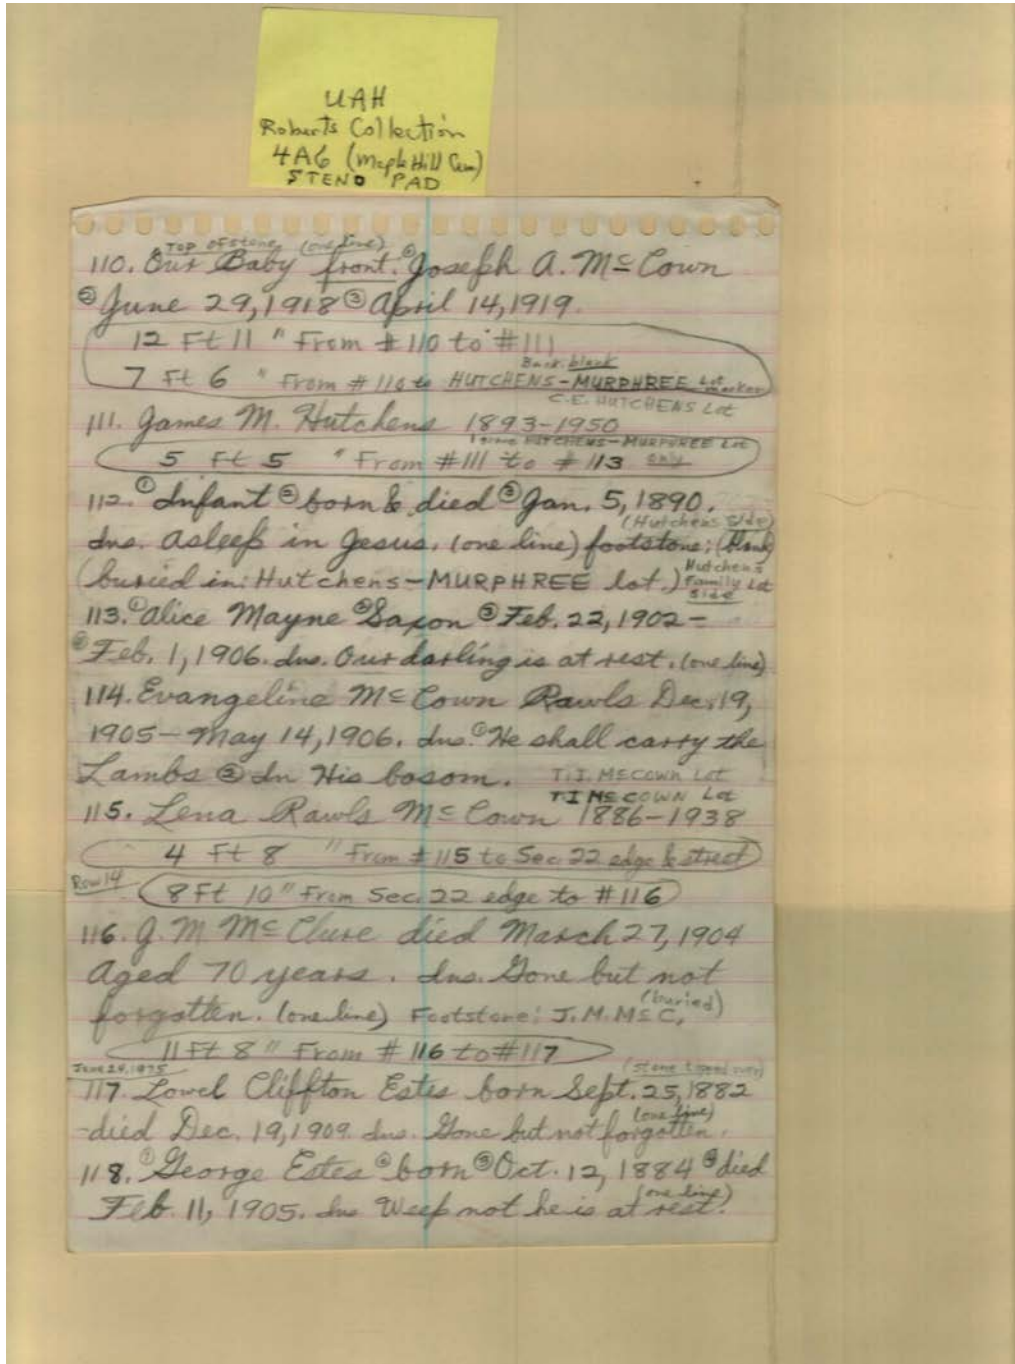 UAH
Roberts Collection
4A6 (Maple Hill Cem)
STENO PAD
Top of stone (one line)
110. Our Baby front. Joseph A. McCown
② June 29, 1918 ③ April 14, 1919.
12 Ft 11 " From #110 to #111
Back blank
7 Ft 6 " From #110 to HUTCHENS-MURPHREE Lot marker
C.E. HUTCHENS Lot
111. James M. Hutchens 1893-1950
HUTCHENS-MURPHREE Lot
5 Ft 5 " From #111 to #113 only
112. ① Infant ② born & died ③ Jan. 5, 1890.
(Hutchens side)
Ins. Asleep in Jesus. (one line) footstone: (blank)
(buried in: Hutchens-MURPHREE lot.) Hutchens Family Lot side
113. ① Alice Mayne ② Saxon ③ Feb. 22, 1902-
④ Feb. 1, 1906. Ins. Our darling is at rest. (one line)
114. Evangeline McCown Rawls Dec. 19,
1905-May 14, 1906. Ins. ① He shall carry the
Lambs ② In His bosom. T.I. McCOWN Lot
T.I McCOWN Lot
115. Lena Rawls McCown 1886-1938
4 Ft 8 " From #115 to Sec. 22 edge & street
Row 14
8 Ft 10 " From Sec. 22 edge to #116
116. J. M McClure died March 27, 1904
Aged 70 years. Ins. Gone but not
(buried)
forgotten. (one line) Footstone: J.M. McC.
11 Ft 8 " From #116 to #117
June 24, 1975 (stone turned over)
117. Lowel Cliffton Estes born Sept. 25, 1882
(one line)
-died Dec. 19, 1909. Ins. Gone but not forgotten.
118. ① George Estes ② born ③ Oct. 12, 1884 ④ died
(one line)
Feb. 11, 1905. Ins Weep not he is at rest.